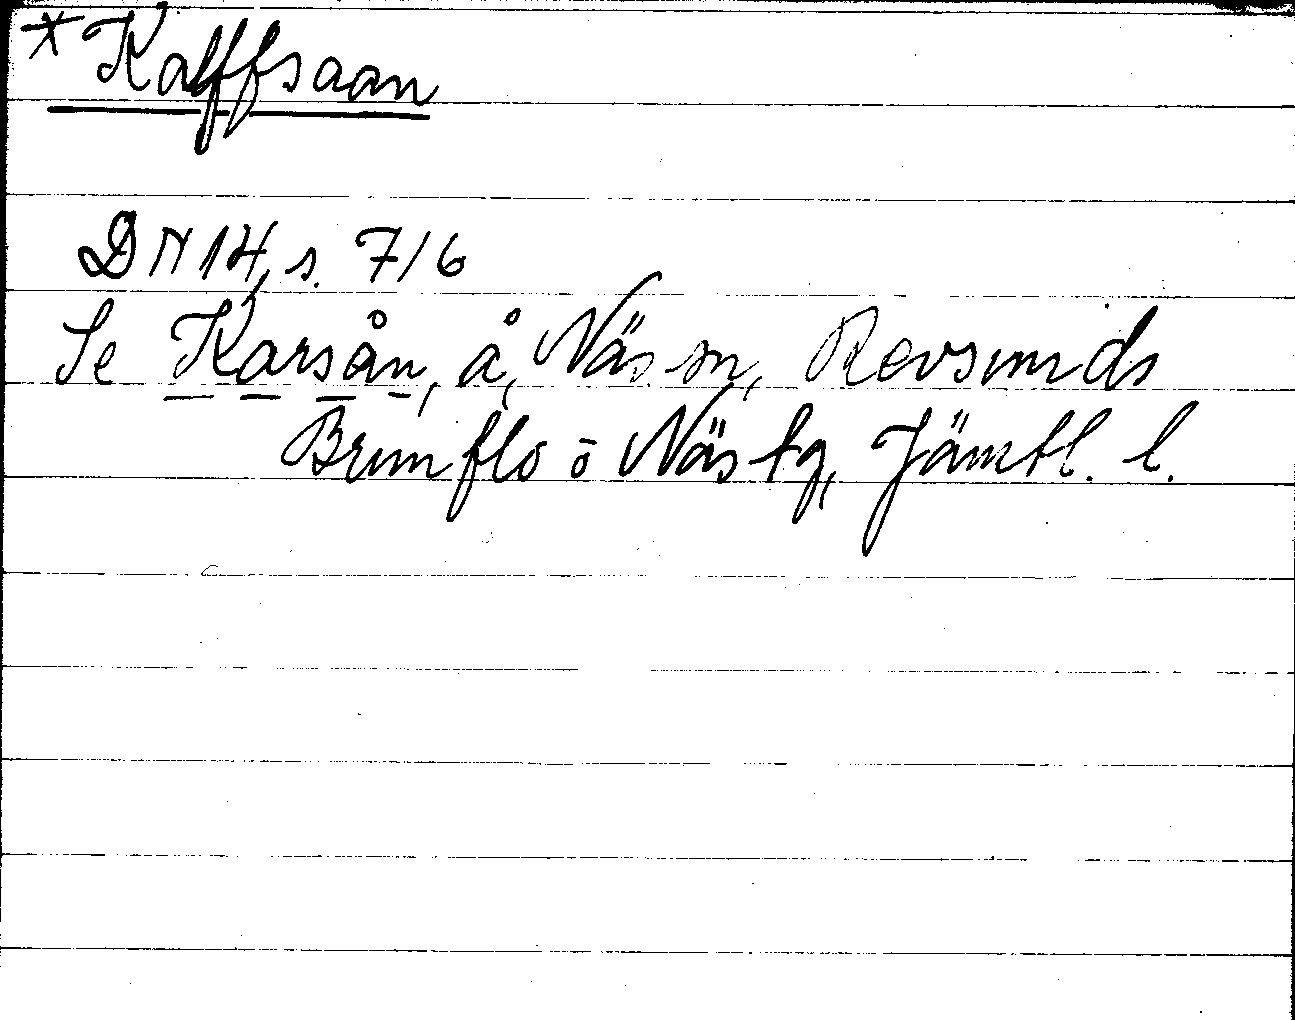 *Kalffsaan
DN 14, s. 716
Se Karsån, å, Näs sn, Revsunds
Brunflo o Näs tg, Jämtl. l.